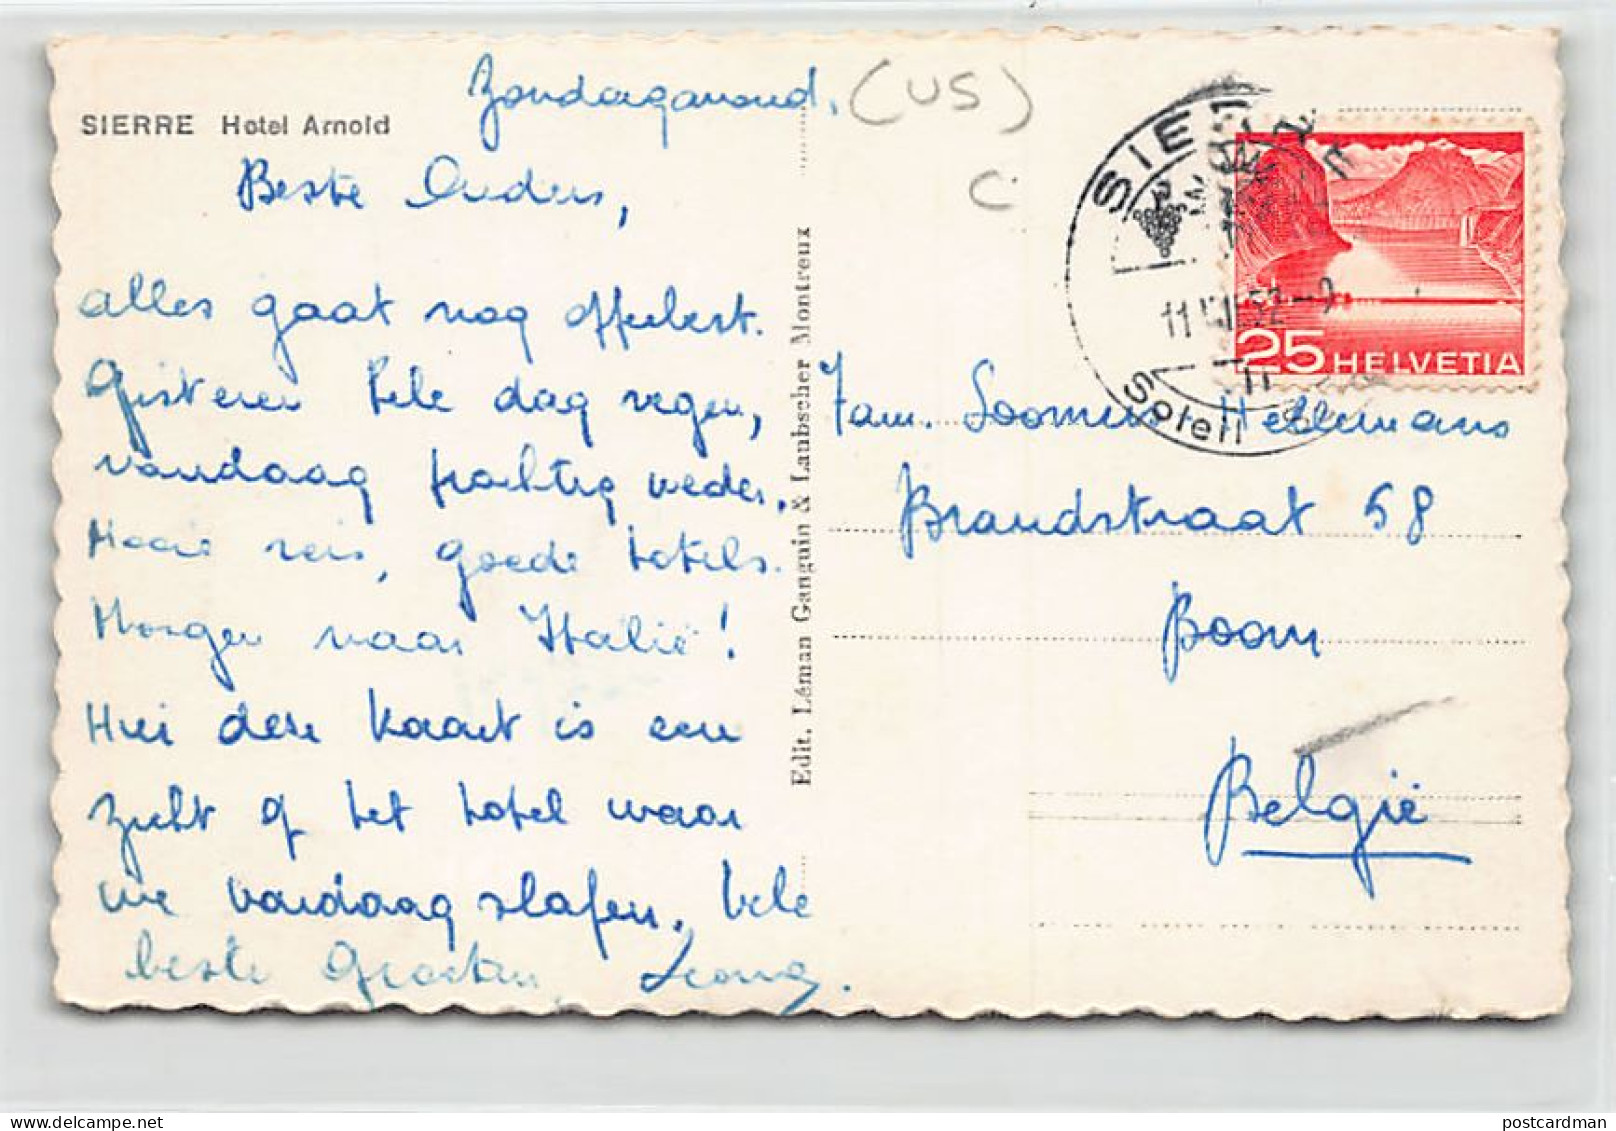 Zondagavond,
(US)
C
SIERRE Hotel Arnold
Beste Ouders,
alles gaat nog opperbest.
Gisteren hele dag regen,
vandaag prachtig weder.
Mooie reis, goede hotels.
Morgen naar Italië!
Hier deze kaart is een
zicht op het hotel waar
we vandaag slapen. Vele
beste Groeten
Edit. Léman Ganguin & Laubscher Montreux
SIE
11 52-9
Soleil
25 HELVETIA
Fam. Hellemans
Brandstraat 58
Boom
België
postcardman